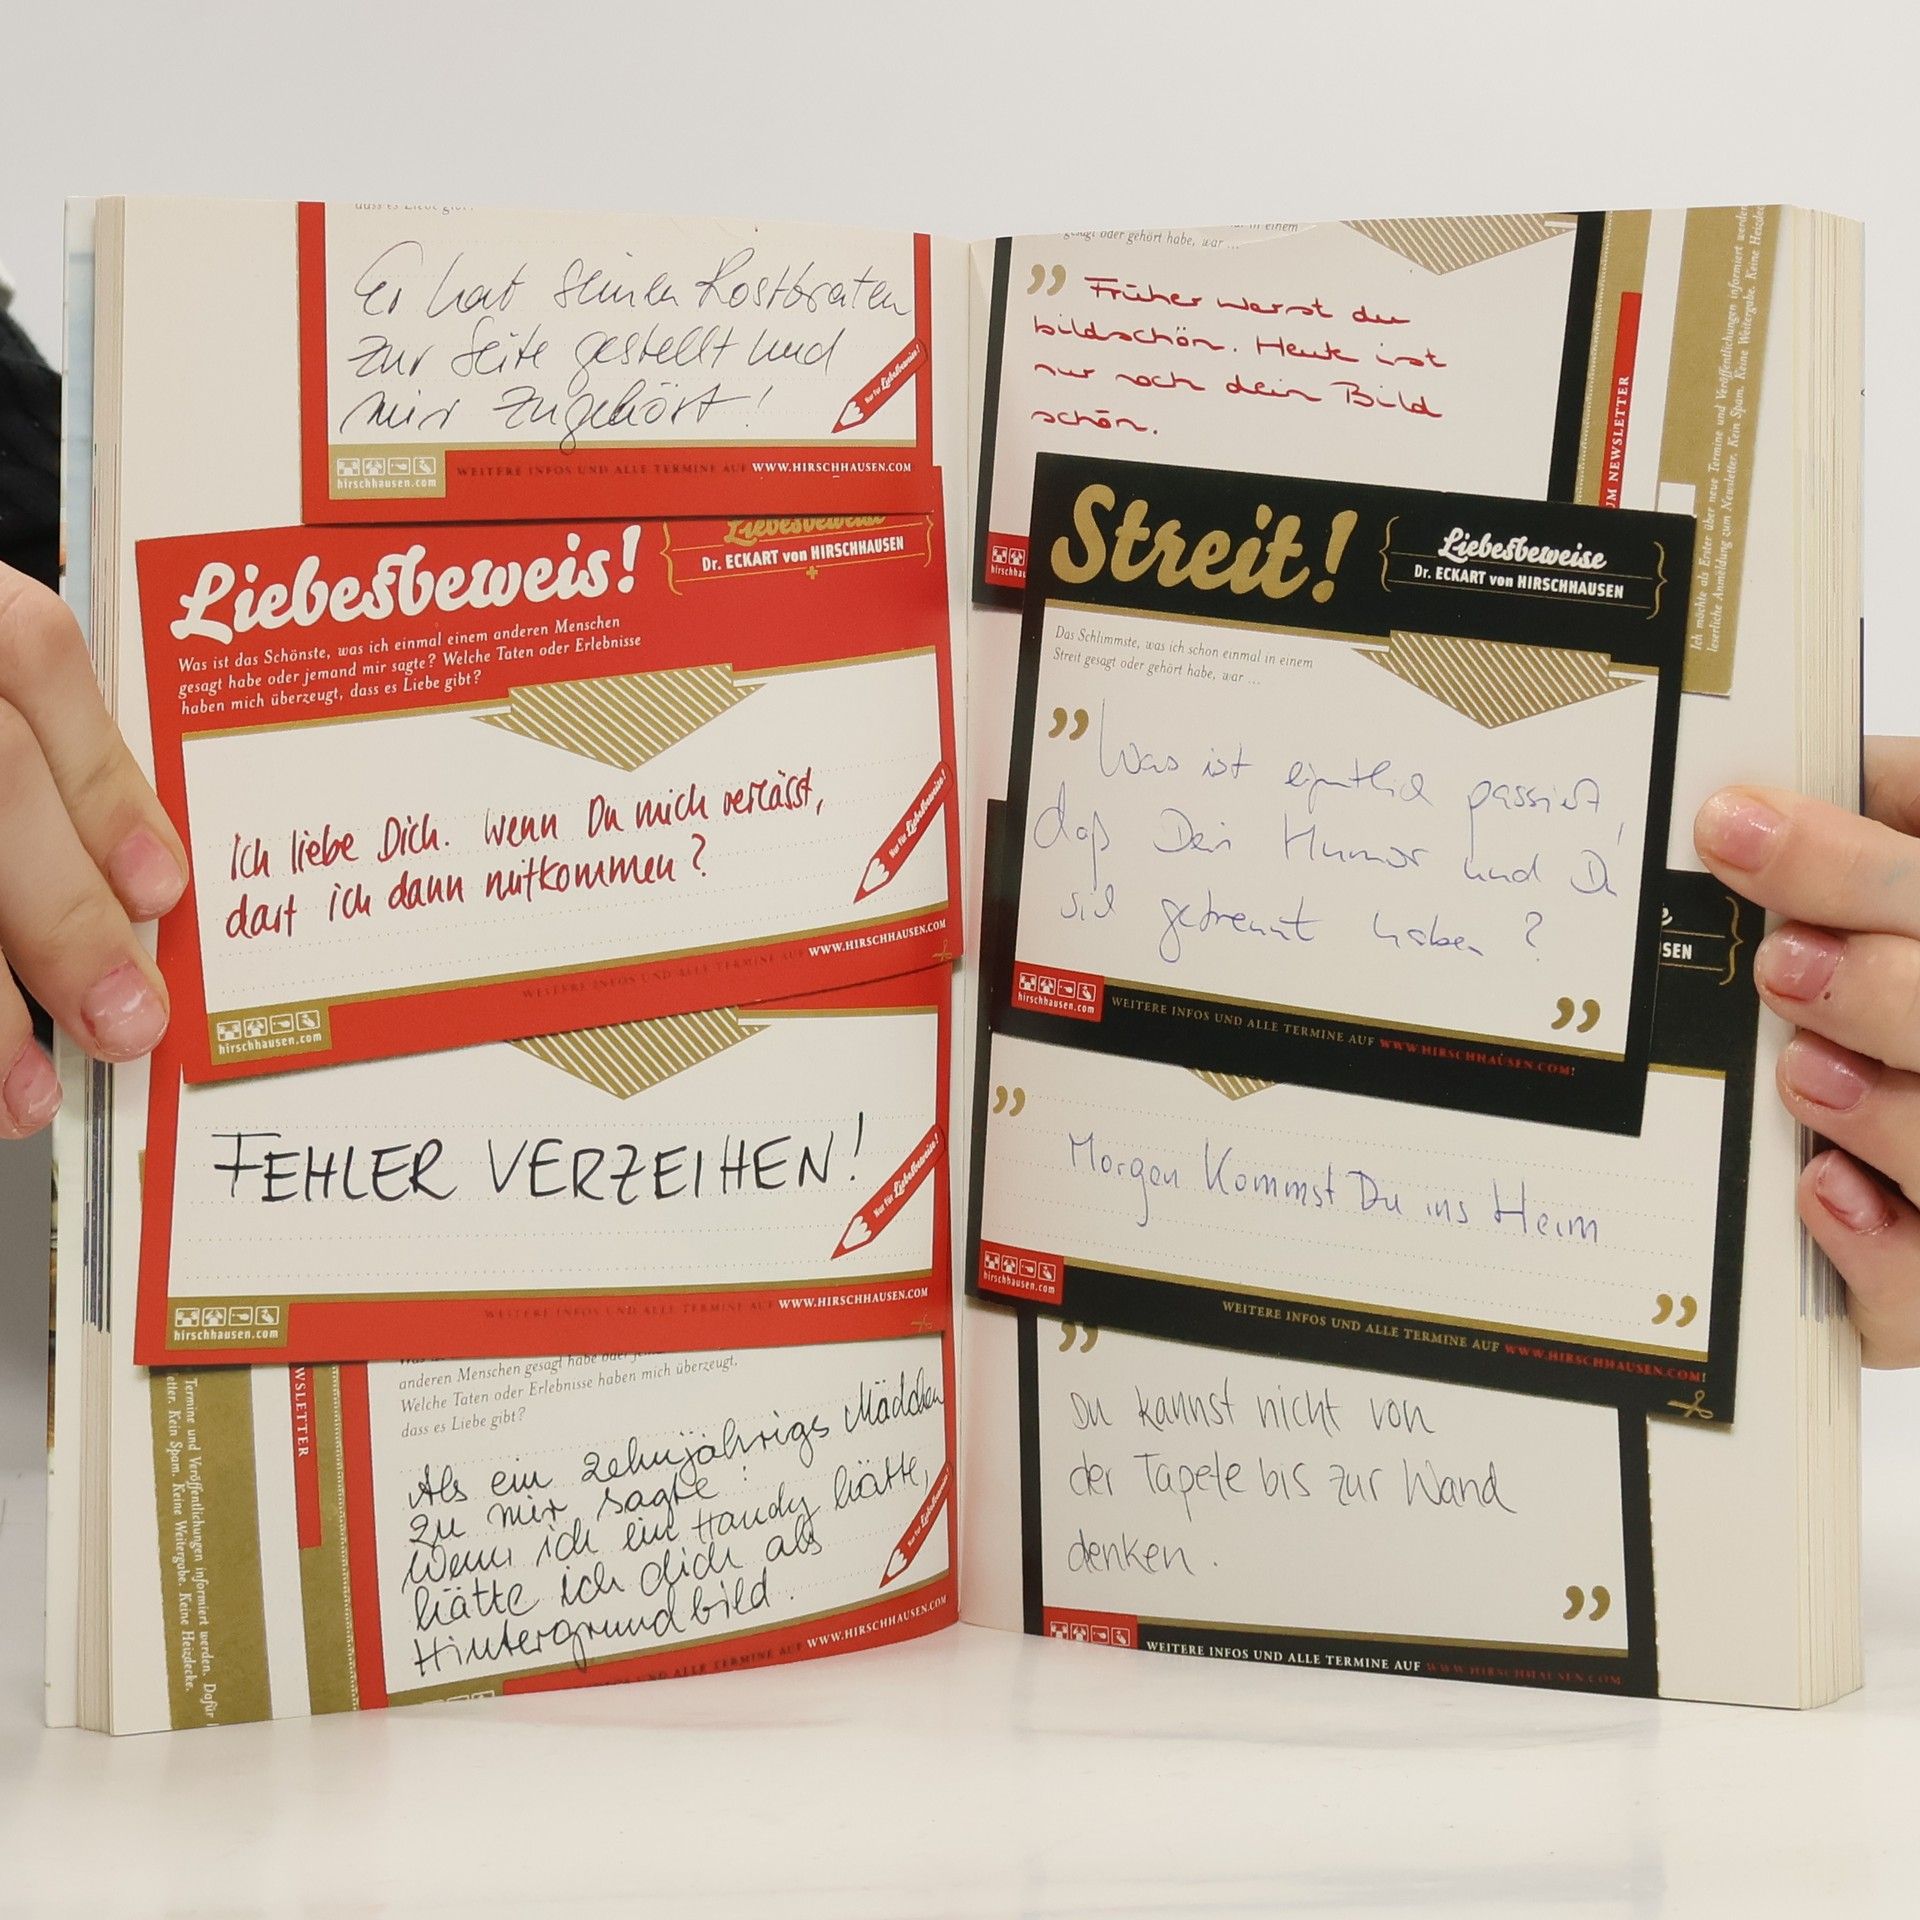 Er hat seinen Rostbraten
zur Seite gestellt und
mir zugehört!
Nur für Liebesbeweise!
hirschhausen.com
WEITERE INFOS UND ALLE TERMINE AUF WWW.HIRSCHHAUSEN.COM
Liebesbeweis!
Liebesbeweise
Dr. ECKART von HIRSCHHAUSEN
Was ist das Schönste, was ich einmal einem anderen Menschen
gesagt habe oder jemand mir sagte? Welche Taten oder Erlebnisse
haben mich überzeugt, dass es Liebe gibt?
Ich liebe Dich. Wenn Du mich verlässt,
darf ich dann mitkommen?
Nur für Liebesbeweise!
WEITERE INFOS UND ALLE TERMINE AUF WWW.HIRSCHHAUSEN.COM
hirschhausen.com
FEHLER VERZEIHEN!
Nur für Liebesbeweise!
hirschhausen.com
WEITERE INFOS UND ALLE TERMINE AUF WWW.HIRSCHHAUSEN.COM
anderen Menschen gesagt habe oder
Welche Taten oder Erlebnisse haben mich überzeugt,
dass es Liebe gibt?
Als ein zehnjährigs Mädchen
zu mir sagte:
Wenn ich ein Handy hätte,
hätte ich dich als
Hintergrundbild.
Nur für Liebesbeweise!
WWW.HIRSCHHAUSEN.COM
WSLETTER
Termine und Veröffentlichungen informiert werden. Dafür
etter. Kein Spam. Keine Weitergabe. Keine Heizdecke.
in einem
gesagt oder gehört habe, war ...
„ Früher warst du
bildschön. Heute ist
nur noch dein Bild
schön.
UM NEWSLETTER
Ich möchte als Erster über neue Termine und Veröffentlichungen informiert werden
leserliche Anmeldung zum Newsletter. Kein Spam. Keine Weitergabe. Keine Heizdec
Streit!
Liebesbeweise
Dr. ECKART von HIRSCHHAUSEN
Das Schlimmste, was ich schon einmal in einem
Streit gesagt oder gehört habe, war ...
” Was ist eigentlich passiert,
daß Dein Humor und Du
sich getrennt haben ?
”
hirschhausen.com
WEITERE INFOS UND ALLE TERMINE AUF WWW.HIRSCHHAUSEN.COM!
SEN
”
Morgen Kommst Du ins Heim
”
hirschhausen.com
WEITERE INFOS UND ALLE TERMINE AUF WWW.HIRSCHHAUSEN.COM!
”
Du kannst nicht von
der Tapete bis zur Wand
denken.
”
WEITERE INFOS UND ALLE TERMINE AUF WWW.HIRSCHHAUSEN.COM